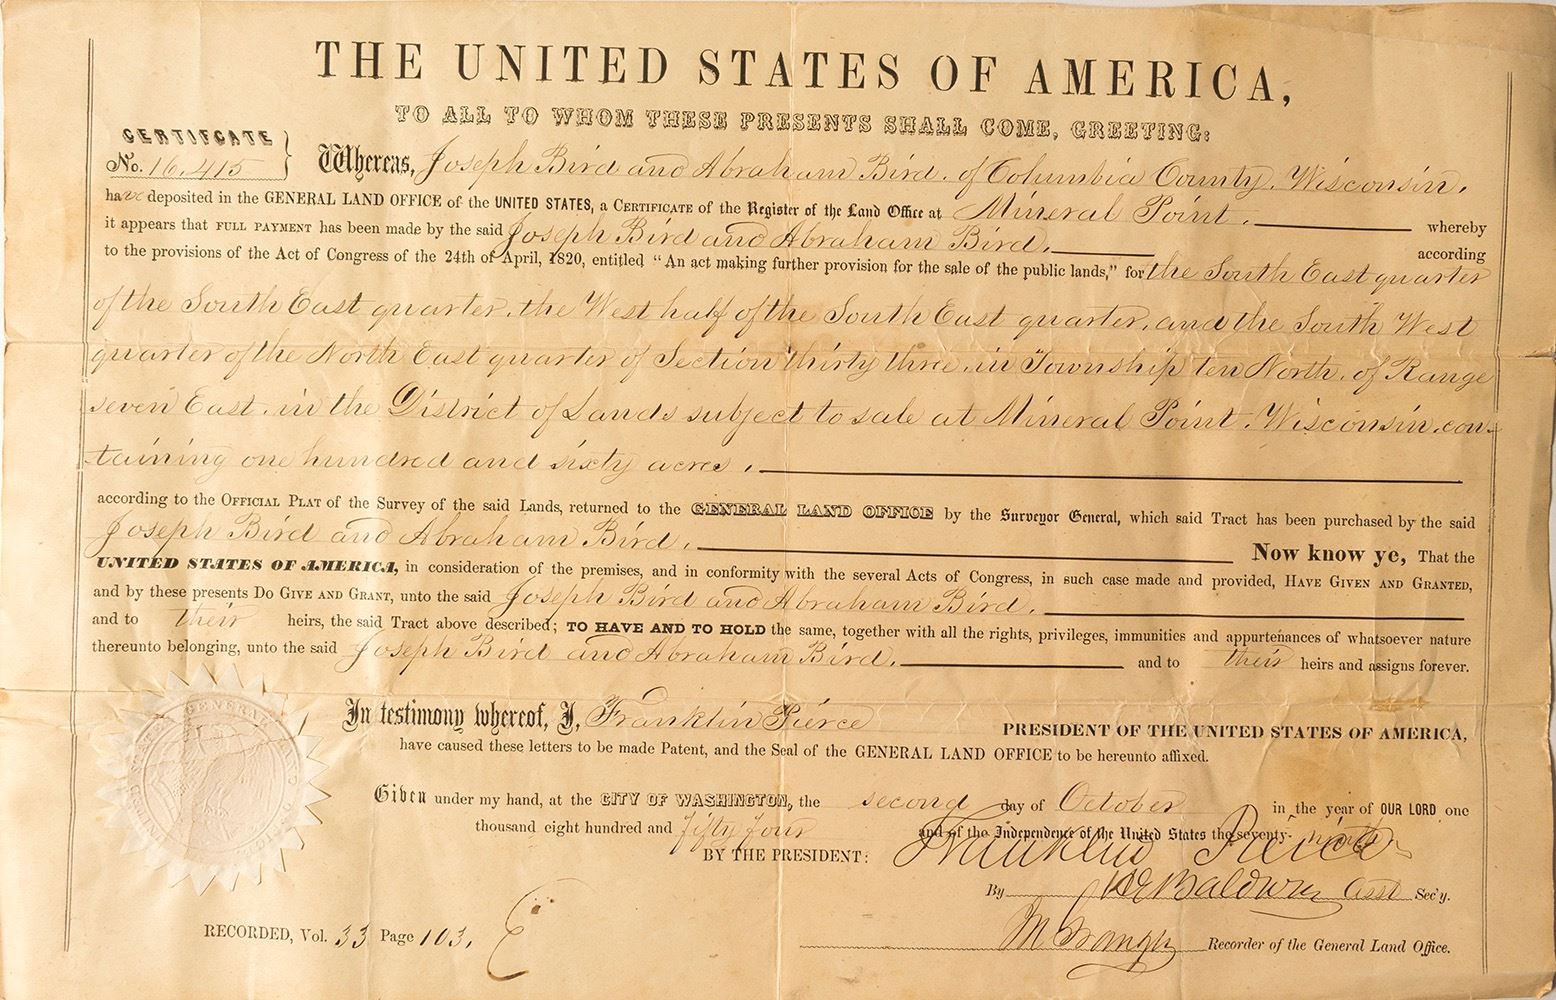 THE UNITED STATES OF AMERICA,
TO ALL TO WHOM THESE PRESENTS SHALL COME, GREETING:
CERTIFICATE
No. 16,415 } Whereas, Joseph Bird and Abraham Bird, of Columbia County, Wisconsin,
have deposited in the GENERAL LAND OFFICE of the UNITED STATES, a CERTIFICATE of the Register of the Land Office at Mineral Point, whereby
it appears that FULL PAYMENT has been made by the said Joseph Bird and Abraham Bird, according
to the provisions of the Act of Congress of the 24th of April, 1820, entitled "An act making further provision for the sale of the public lands," for the South East quarter
of the South East quarter, the West half of the South East quarter, and the South West
quarter of the North East quarter of Section thirty three, in Township ten North, of Range
seven East, in the District of Lands subject to sale at Mineral Point, Wisconsin, con-
taining one hundred and sixty acres,
according to the OFFICIAL PLAT of the Survey of the said Lands, returned to the GENERAL LAND OFFICE by the Surveyor General, which said Tract has been purchased by the said
Joseph Bird and Abraham Bird, Now know ye, That the
UNITED STATES OF AMERICA, in consideration of the premises, and in conformity with the several Acts of Congress, in such case made and provided, HAVE GIVEN AND GRANTED,
and by these presents DO GIVE AND GRANT, unto the said Joseph Bird and Abraham Bird,
and to their heirs, the said Tract above described; TO HAVE AND TO HOLD the same, together with all the rights, privileges, immunities and appurtenances of whatsoever nature
thereunto belonging, unto the said Joseph Bird and Abraham Bird, and to their heirs and assigns forever.
In testimony whereof, I, Franklin Pierce PRESIDENT OF THE UNITED STATES OF AMERICA,
have caused these letters to be made Patent, and the Seal of the GENERAL LAND OFFICE to be hereunto affixed.
Given under my hand, at the CITY OF WASHINGTON, the second day of October in the year of OUR LORD one
thousand eight hundred and fifty four and of the Independence of the United States the seventy-ninth
BY THE PRESIDENT: Franklin Pierce
By Baldwin Asst Sec'y.
RECORDED, Vol. 33 Page 103.
Recorder of the General Land Office.